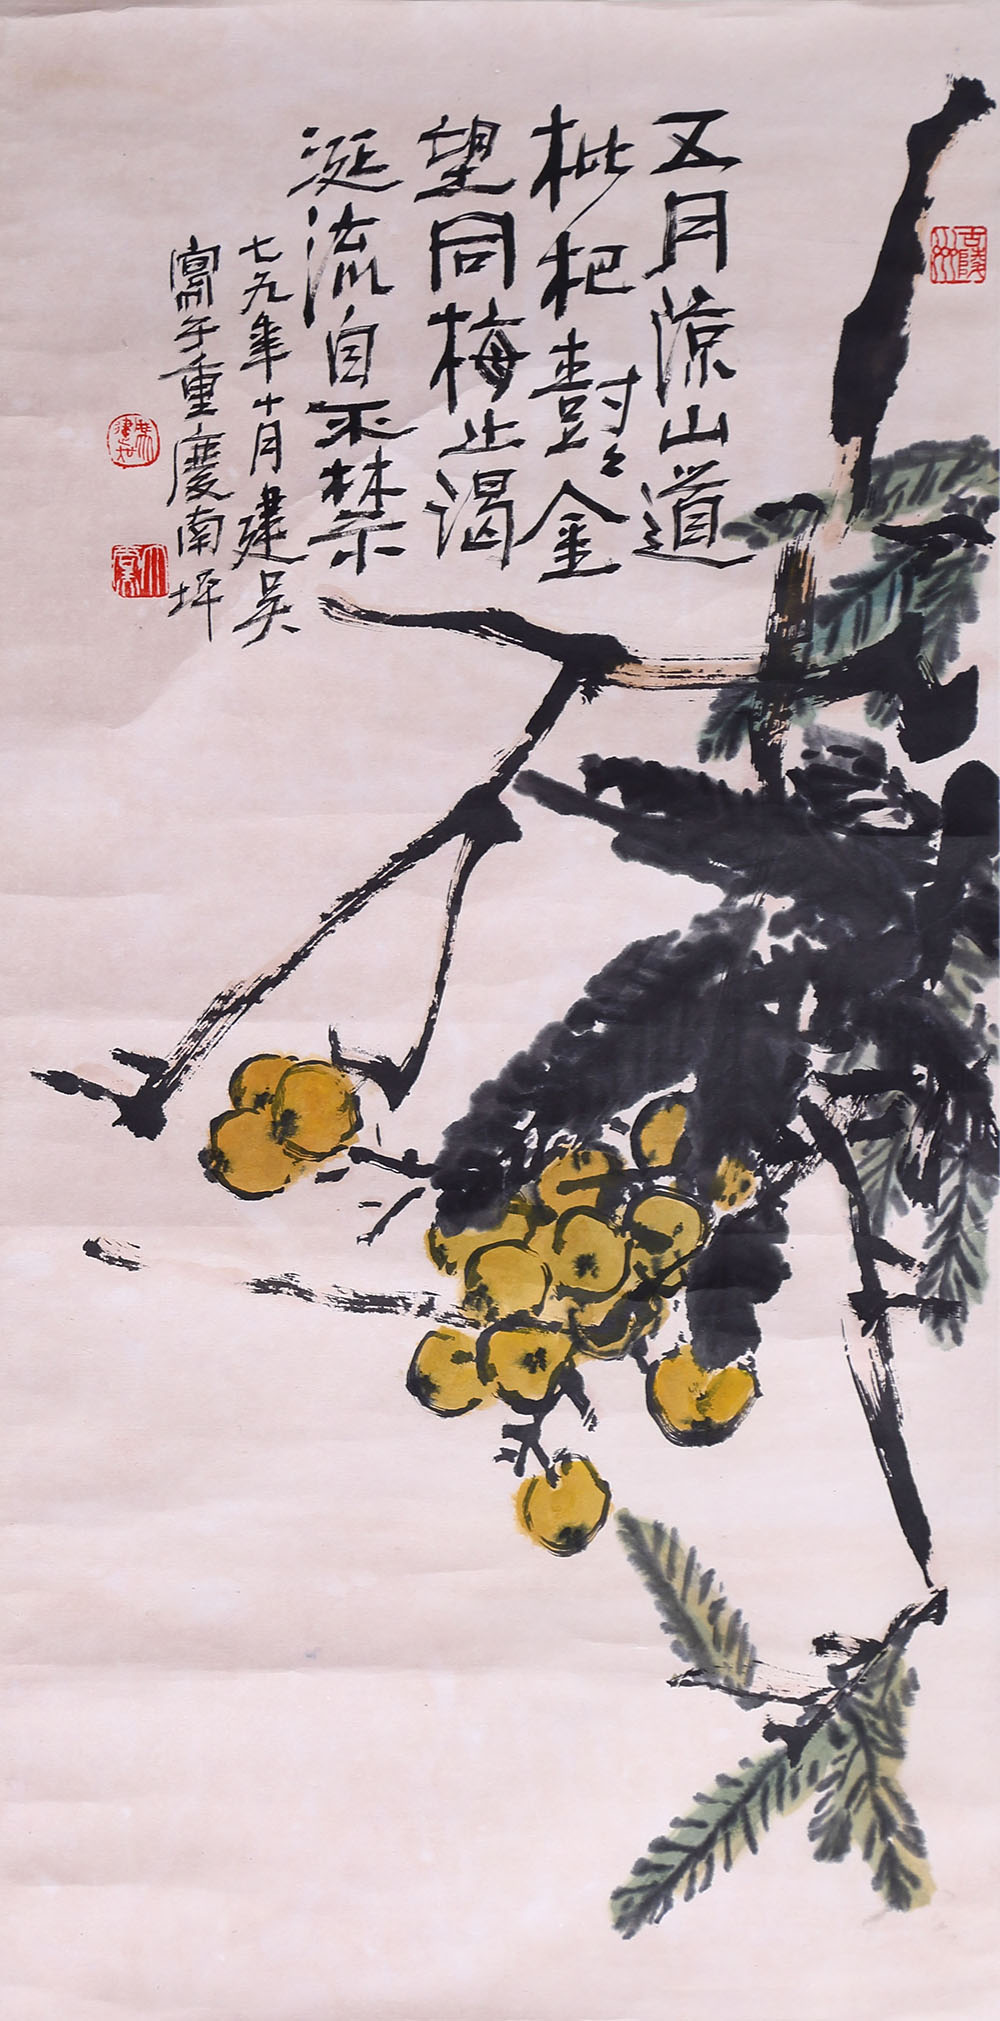 五月涼山道
枇杷封々金
望同梅止渴
涎流自不禁
七九年十月建吴
寫于重慶南坪